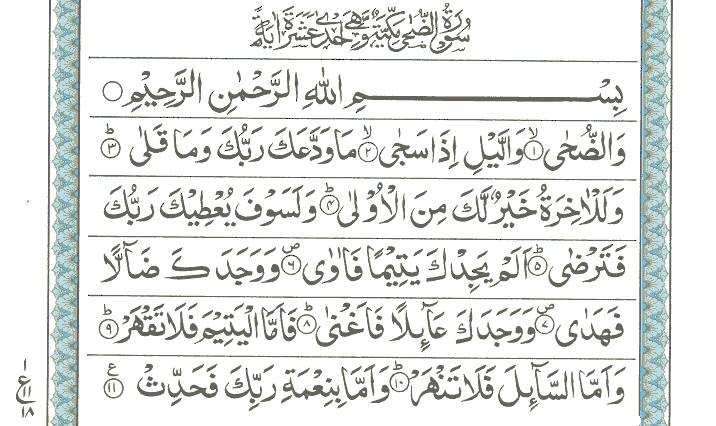 سُوْرَةُ الضُّحٰى مَكِّيَّةٌ وَّهِيَ اِحْدٰى عَشَرَةَ اٰيَةً
بِسْمِ اللهِ الرَّحْمٰنِ الرَّحِيْمِ
وَالضُّحٰى ۙ﴿۱﴾ وَالَّيْلِ اِذَا سَجٰى ۙ﴿۲﴾ مَا وَدَّعَكَ رَبُّكَ وَمَا قَلٰى ؕ﴿۳﴾
وَلَلْاٰخِرَةُ خَيْرٌ لَّكَ مِنَ الْاُوْلٰى ؕ﴿۴﴾ وَلَسَوْفَ يُعْطِيْكَ رَبُّكَ
فَتَرْضٰى ؕ﴿۵﴾ اَلَمْ يَجِدْكَ يَتِيْمًا فَاٰوٰى ۪﴿۶﴾ وَوَجَدَكَ ضَآلًّا
فَهَدٰى ۪﴿۷﴾ وَوَجَدَكَ عَآئِلًا فَاَغْنٰى ؕ﴿۸﴾ فَاَمَّا الْيَتِيْمَ فَلَا تَقْهَرْ ؕ﴿۹﴾
وَاَمَّا السَّآئِلَ فَلَا تَنْهَرْ ؕ﴿۱۰﴾ وَاَمَّا بِنِعْمَةِ رَبِّكَ فَحَدِّثْ ﴿۱۱﴾ ع
۱
ع
۱۱
۱۸